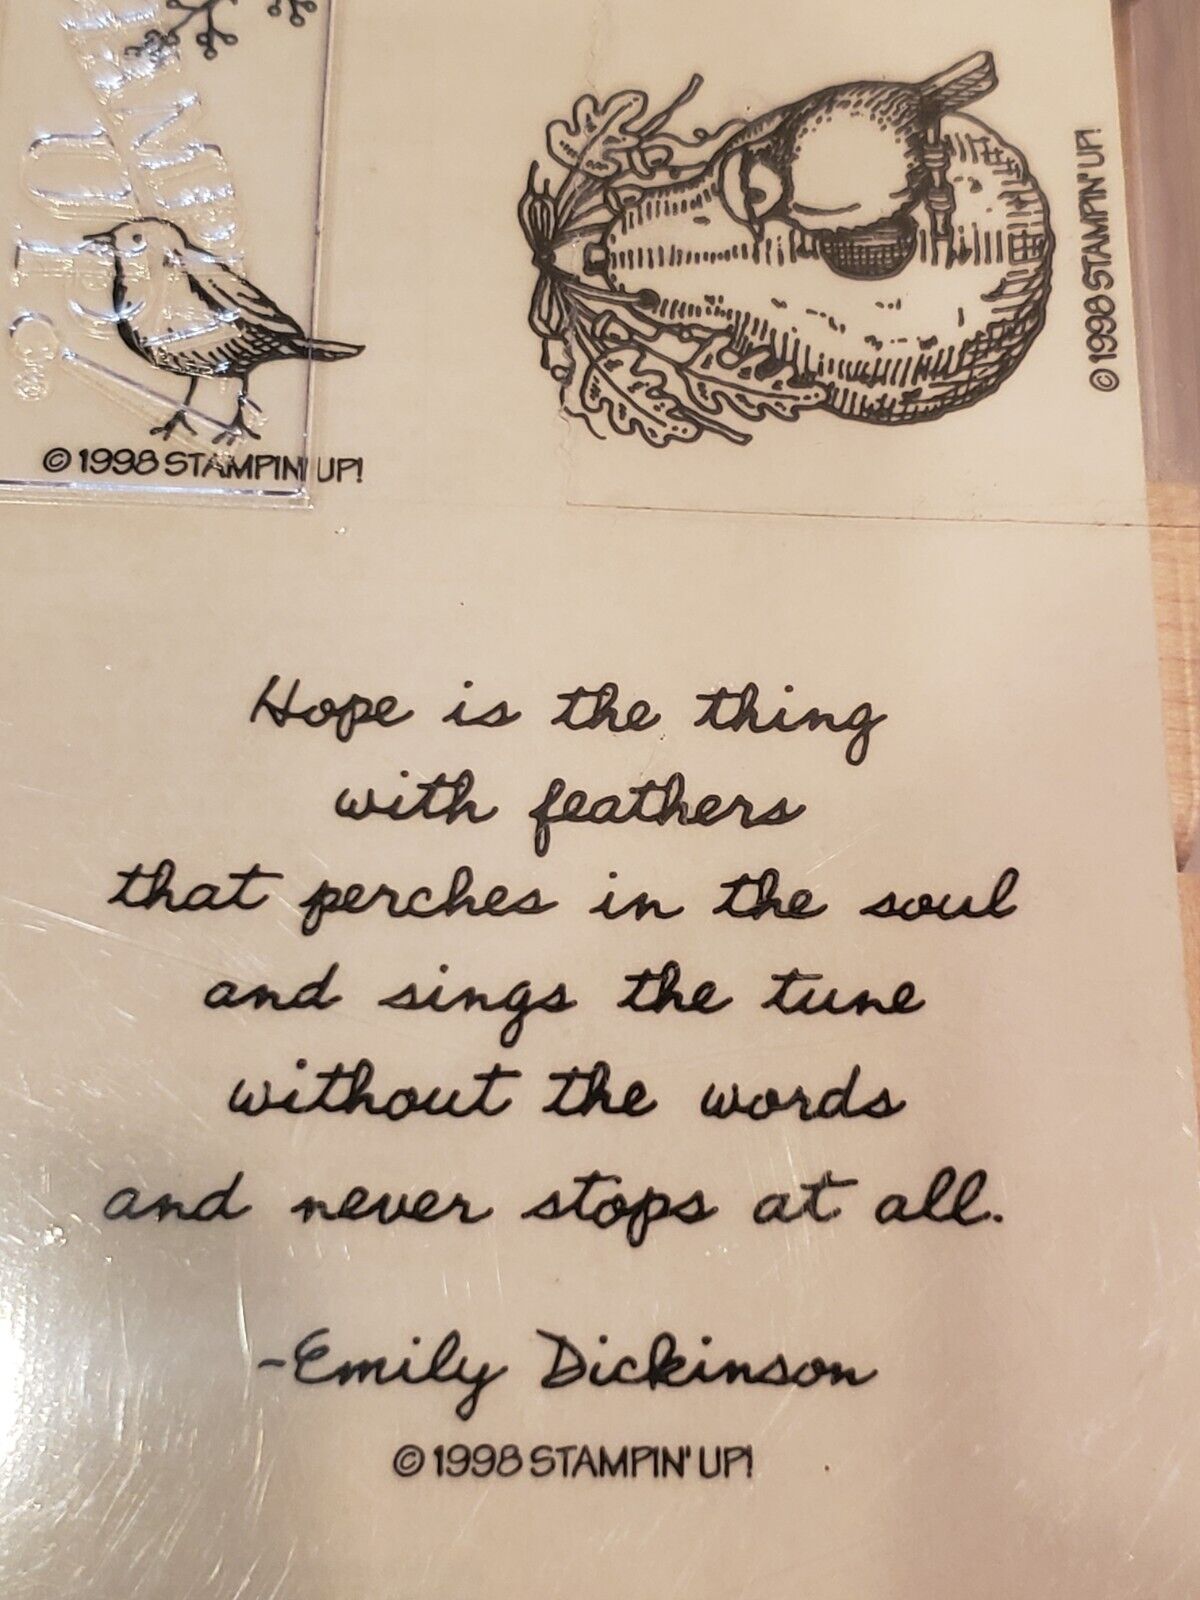 STAMPIN' UP!®
© 1998 STAMPIN' UP!
© 1998 STAMPIN' UP!
Hope is the thing
with feathers
that perches in the soul
and sings the tune
without the words
and never stops at all.
-Emily Dickinson
© 1998 STAMPIN' UP!